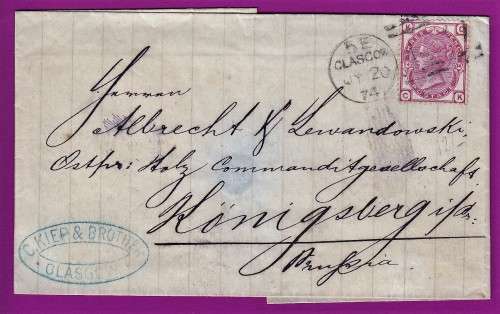 5 E
GLASGOW
JY 20
74
C K
Herren
Albrecht & Lewandowski,
Ostpr: Holz Commanditgesellschaft
Königsberg i/Pr.
Prussia.
C. KIEP & BROTHER
GLASGOW